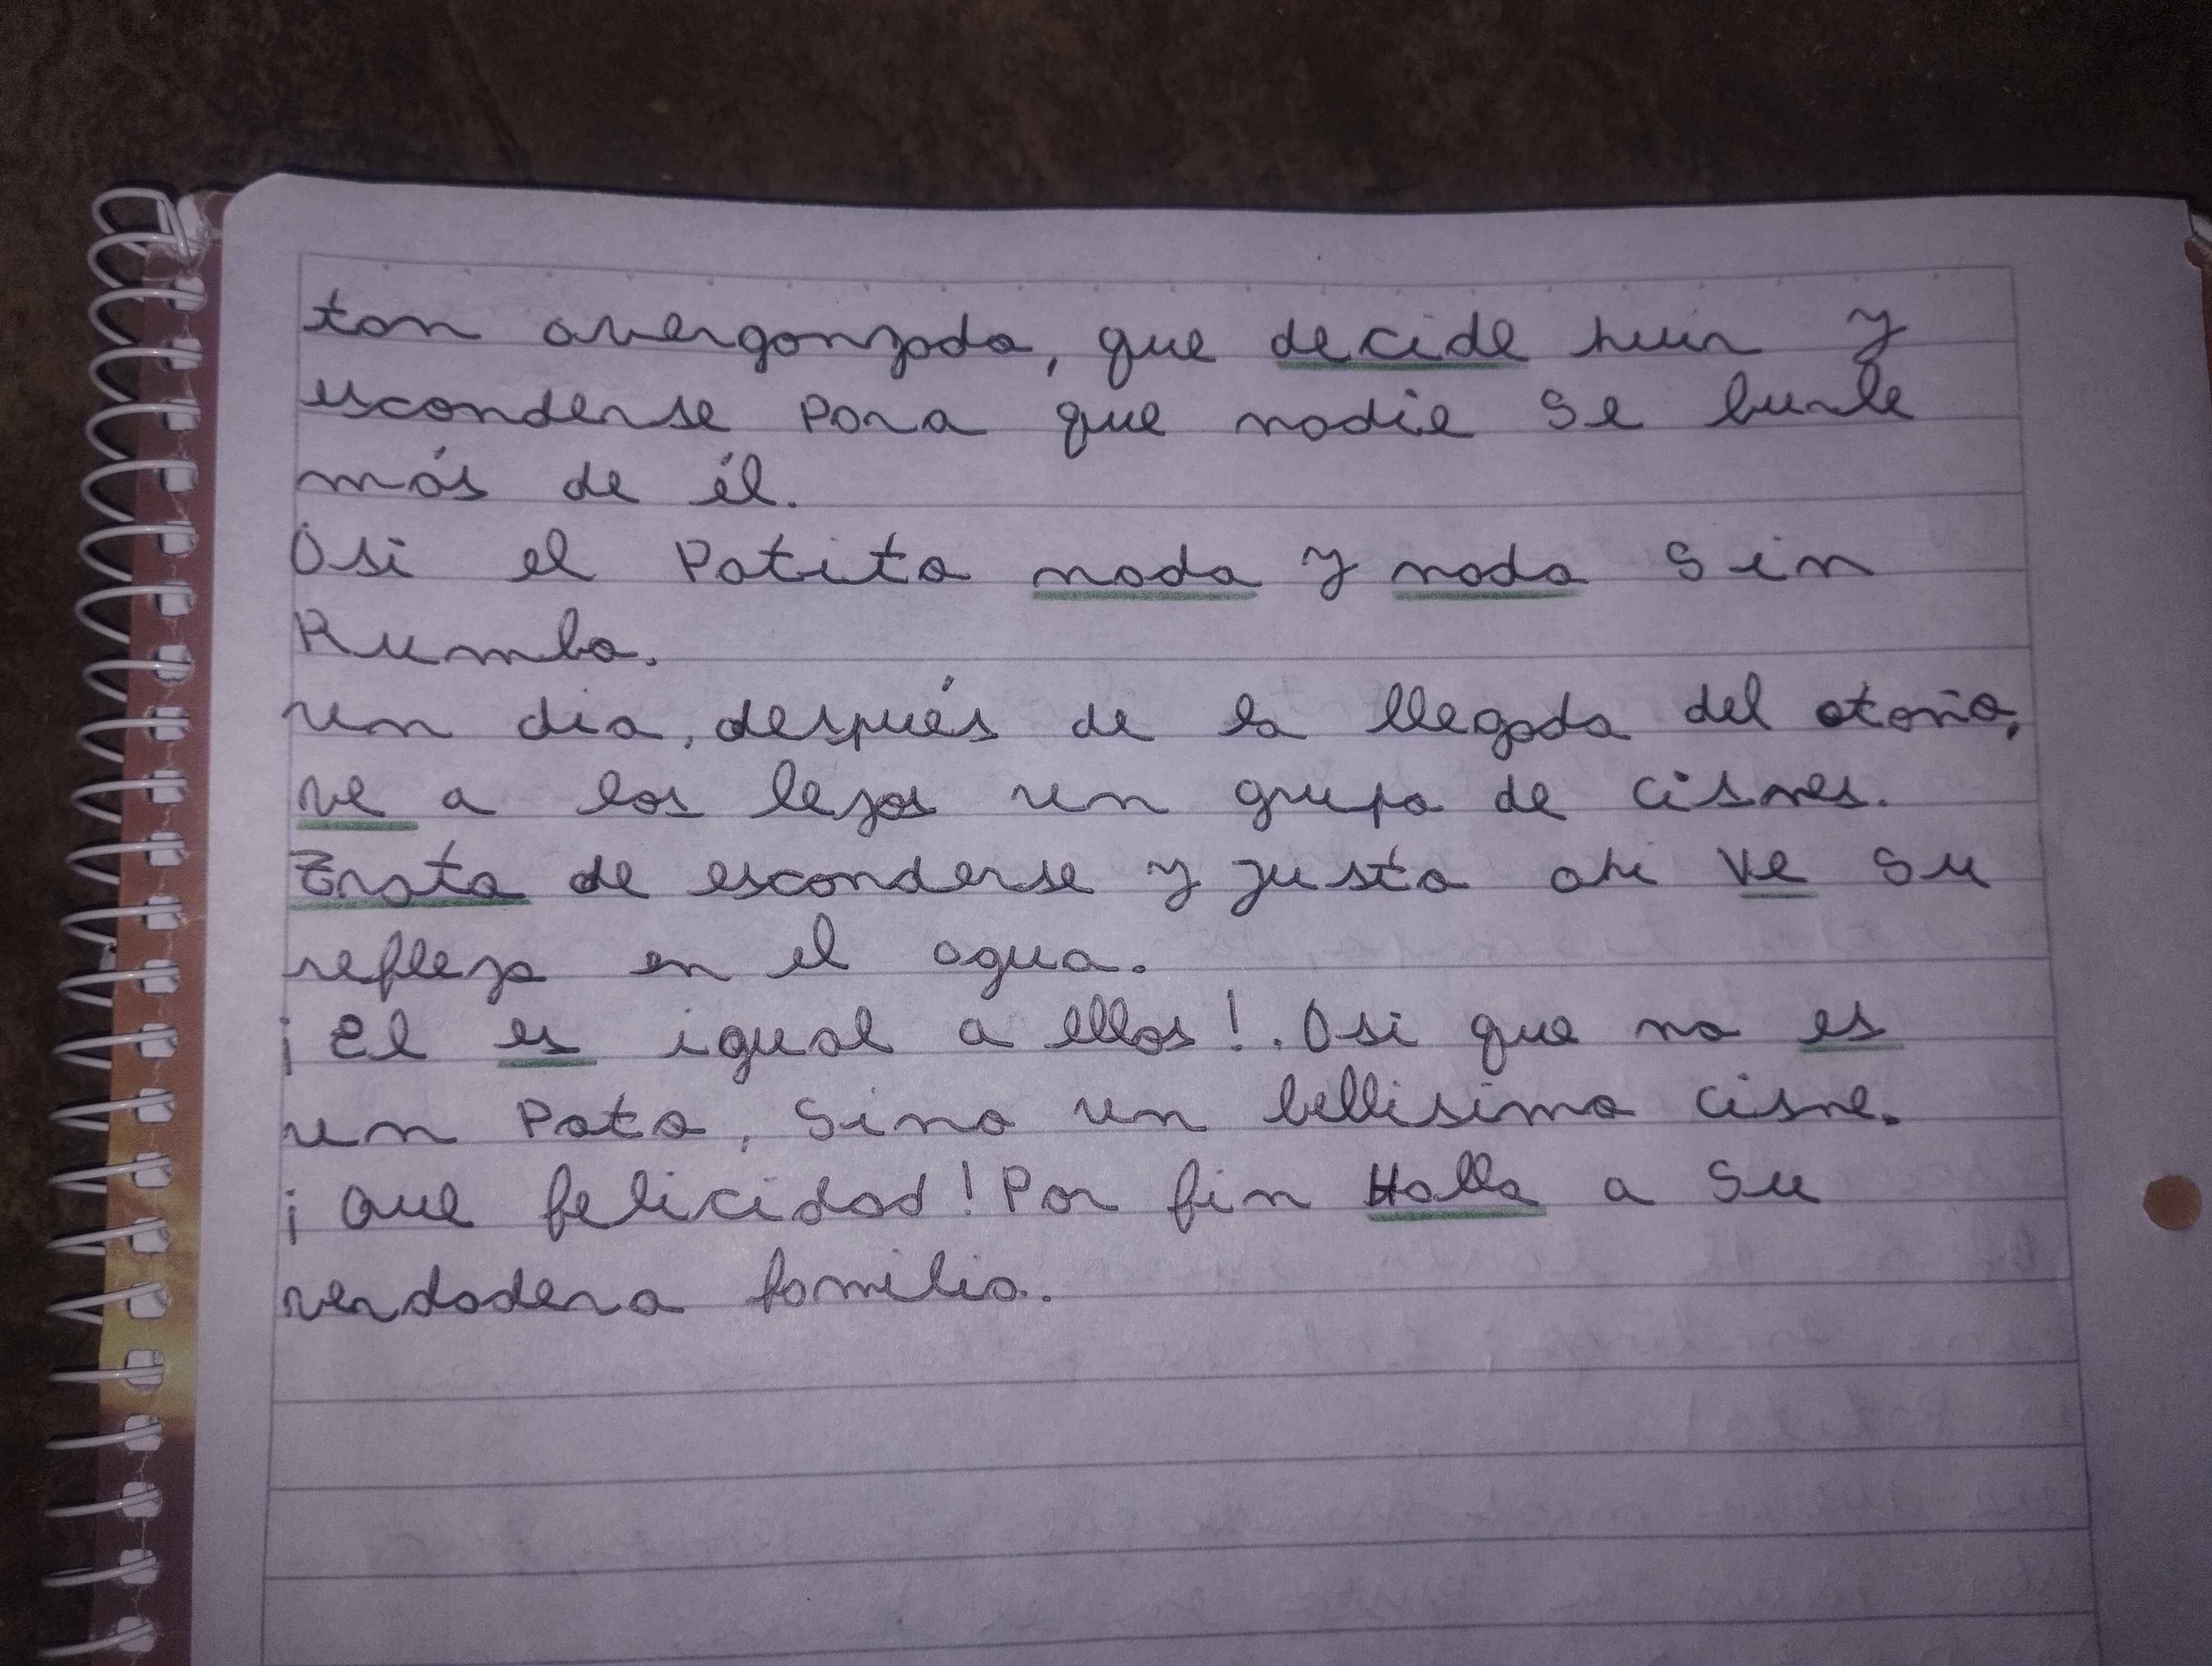 tan avergonzado, que decide huir y
esconderse Para que nadie se burle
más de él.
Asi el Patito nada y nada sin
Rumbo.
un dia, después de la llegada del otoño,
ve a los lejos un grupo de cisnes.
Trata de esconderse y justo ahi ve su
reflejo en el agua.
¡El es igual a ellos!. Asi que no es
un Pato, Sino un bellisimo cisne.
¡Que felicidad! Por fin Halla a su
verdadera familia.